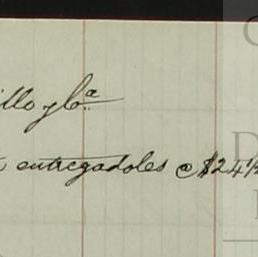 illo y Cª
entregadoles @ $24½